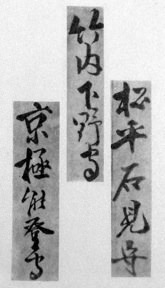 松平石見守
竹内下野守
京極能登守